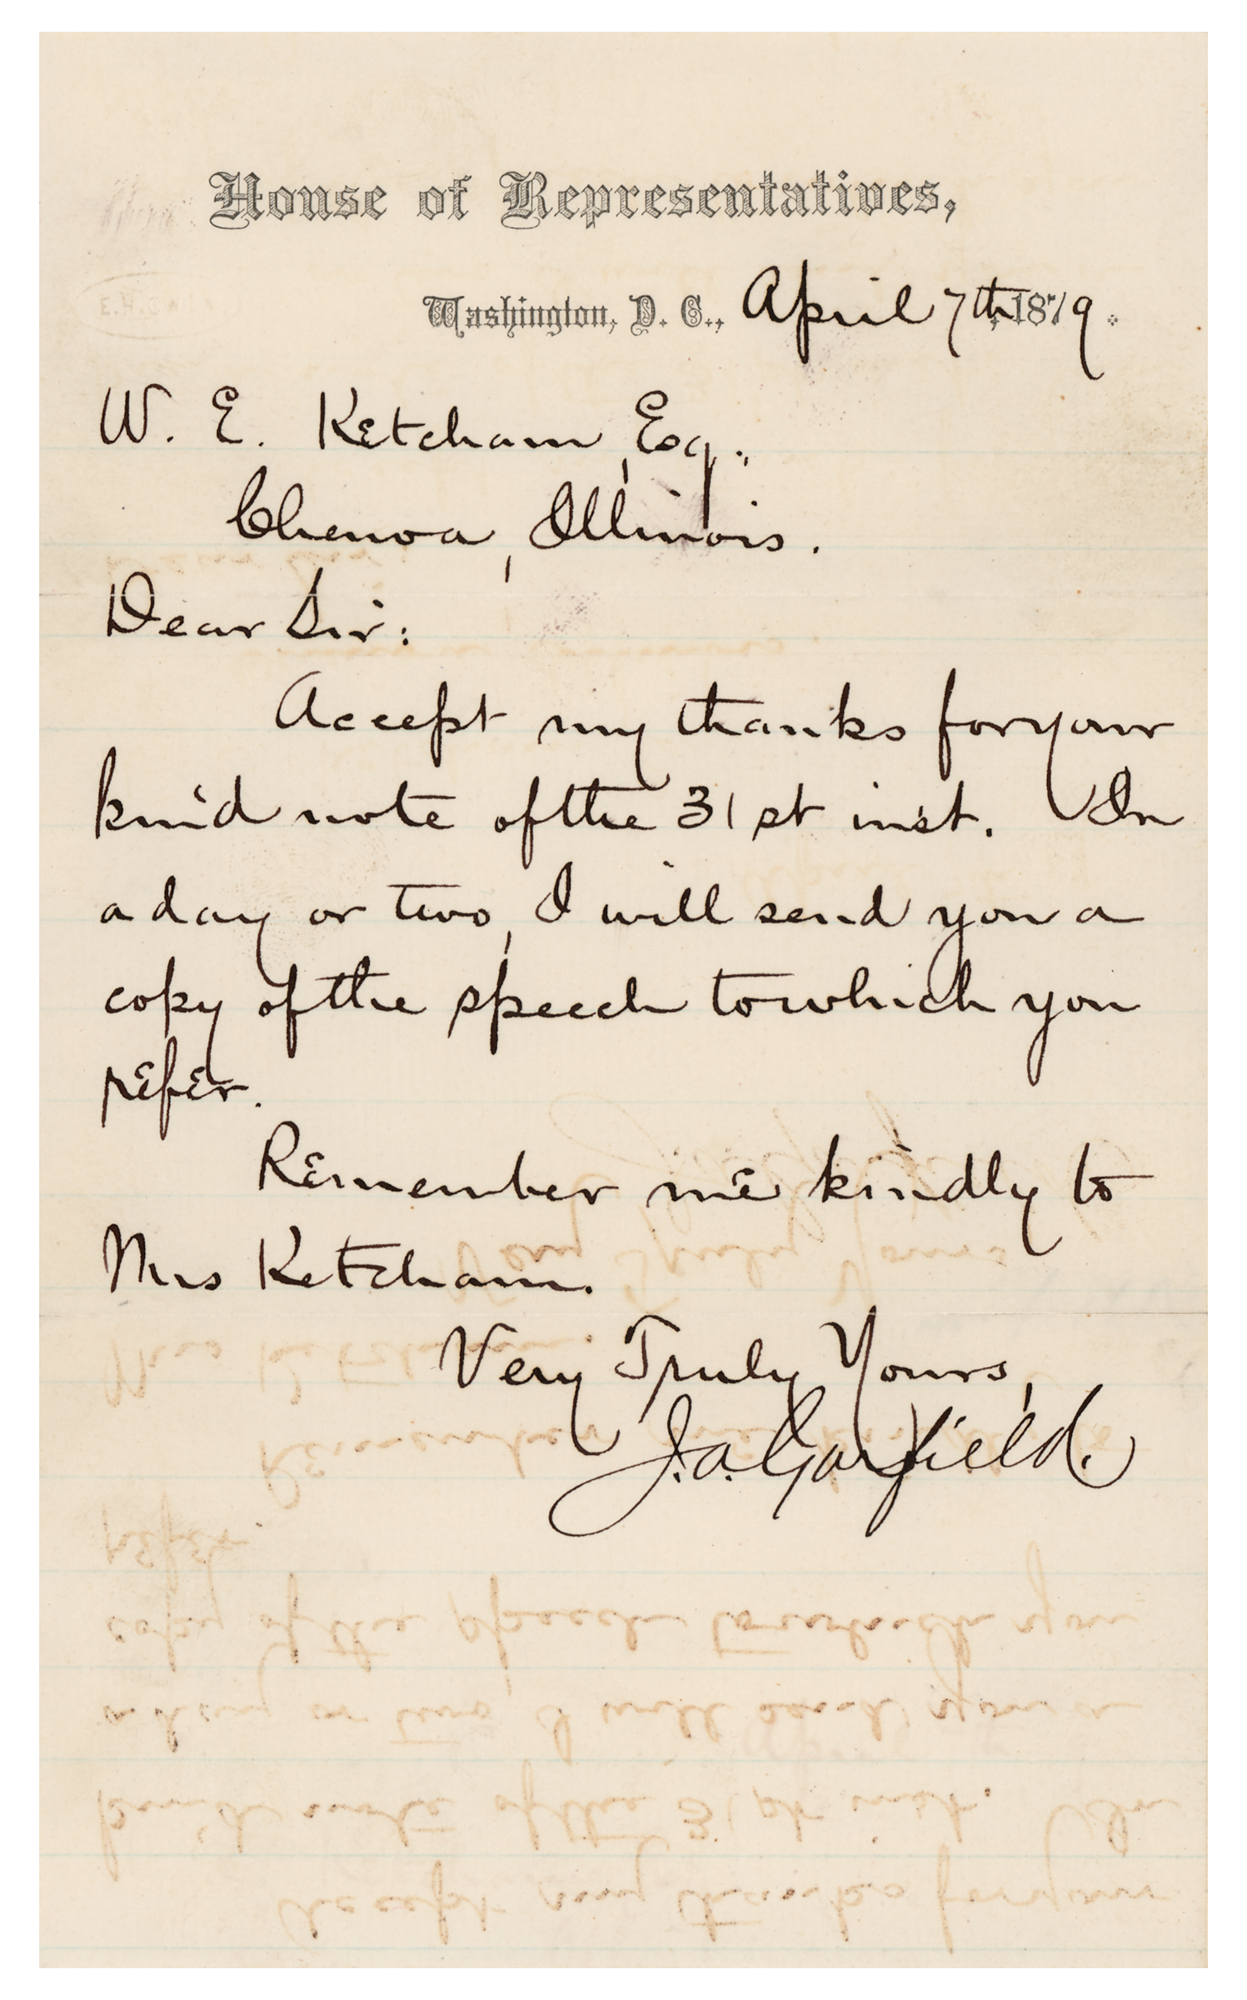 House of Representatives,
Washington, D. C., April 7th, 1879.
W. E. Ketcham, Esq.,
Chenoa, Illinois.
Dear Sir:
Accept my thanks for your
kind note of the 31st inst. In
a day or two, I will send you a
copy of the speech to which you
refer.
Remember me kindly to
Mrs Ketcham.
Very Truly Yours,
J. A. Garfield.